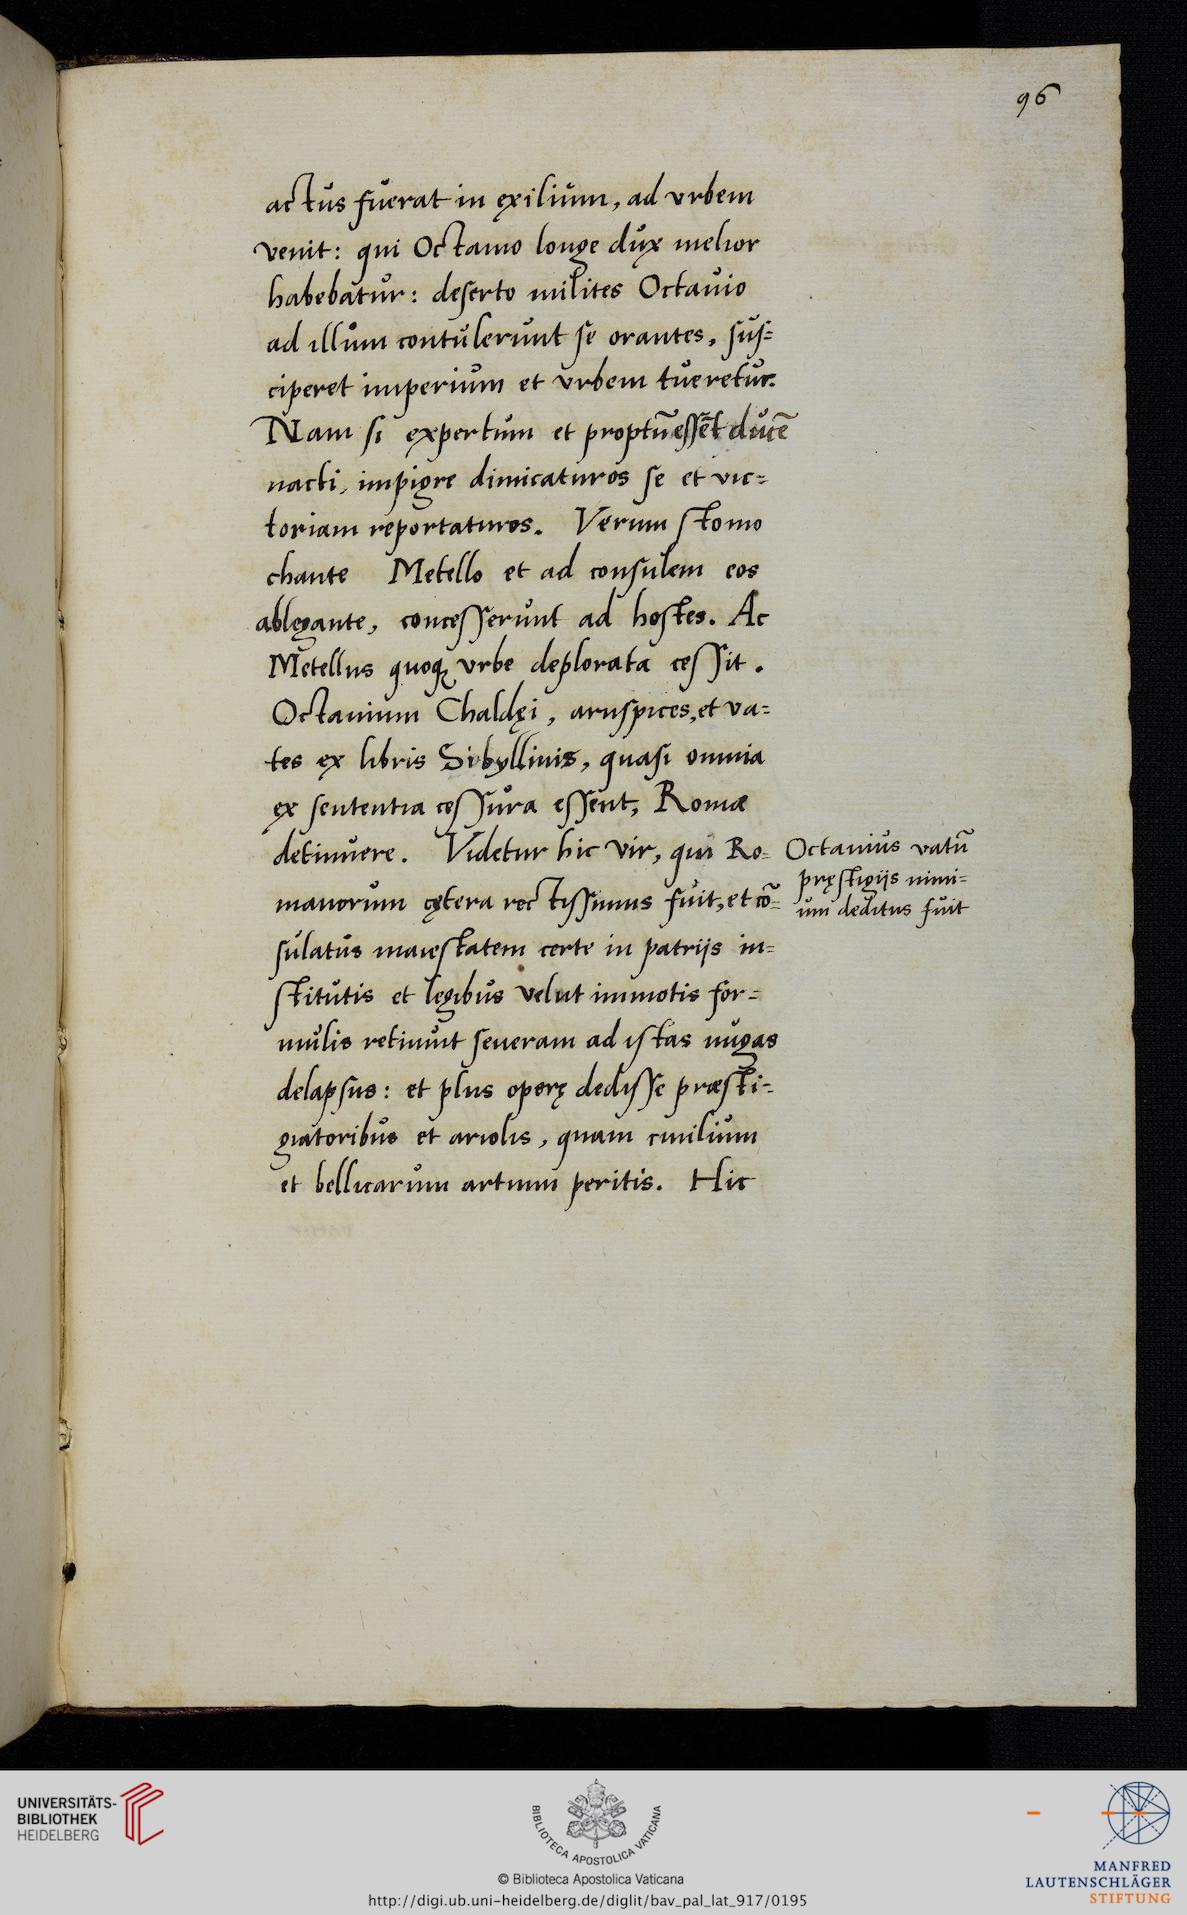 96
actus fuerat in exilium, ad vrbem
venit: qui Octauio longe dux melior
habebatur: deserto milites Octauio
ad illum contulerunt se orantes, sus=
ciperet imperium et vrbem tueretur.
Nam si expertum et proptū essēt ducē
nacti, impigre dimicaturos se et vic=
toriam reportaturos. Verum stomo
chante Metello et ad consulem eos
ablegante, concesserunt ad hostes. Ac
Metellus quoqꝫ vrbe deplorata cessit.
Octauium Chaldęi, aruspices, et va=
tes ex libris Sibyllinis, quasi omnia
ex sententia cessura essent, Romæ
detinuere. Videtur hic vir, qui Ro=
manorum cętera rectissimus fuit, et cō=
sulatus maiestatem certe in patrijs in=
stitutis et legibus velut immotis for=
mulis retinuit seueram ad istas nugas
delapsus: et plus operę dedisse præsti=
giatoribus et ariolis, quam ciuilium
et bellicarum artium peritis. Hic
Octauius vatū
pręstigijs nimi=
um deditus fuit
UNIVERSITÄTS-
BIBLIOTHEK
HEIDELBERG
BIBLIOTECA APOSTOLICA VATICANA
© Biblioteca Apostolica Vaticana
http://digi.ub.uni-heidelberg.de/diglit/bav_pal_lat_917/0195
MANFRED
LAUTENSCHLÄGER
STIFTUNG